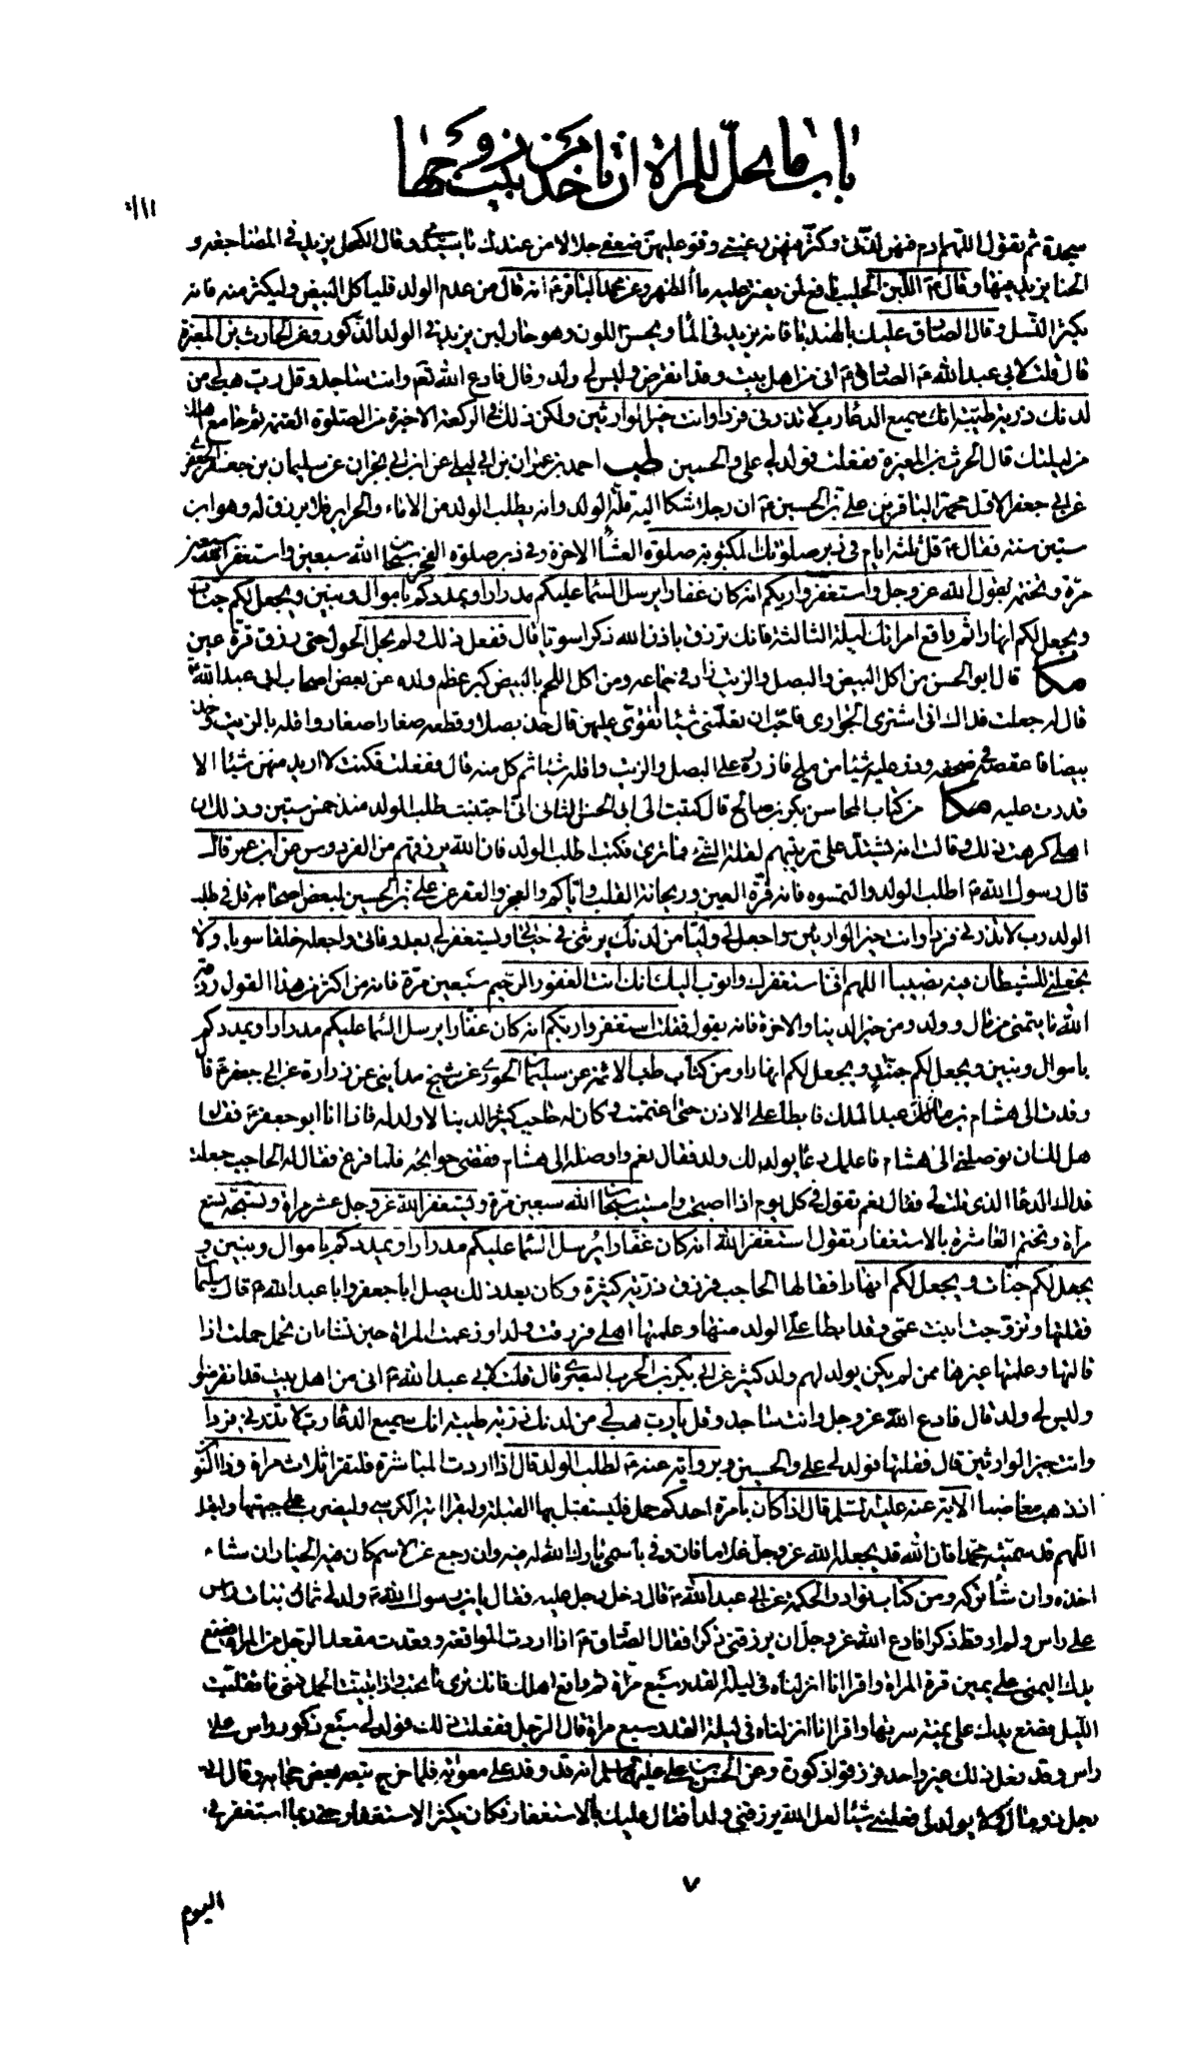 باب ما يحل للمراة ان تاخذ من بيت زوجها
سجدة ثم يقول اللهم ادم فيهن لذتي وكثر فيهن رغبتي وقو عليهن ضعفي حلالا من عندك يا سيدي وقال الكحل يزيد في المضاجعة و
الحنا يزيد فيها وقال ع اللبن الحليب نافع لمن يفتر عليه ماء الظهر وعن محمد الباقر ع انه قال من عدم الولد فلياكل البيض وليكثر منه فانه
يكثر النسل وقال الصادق عليك بالهندبا فانه يزيد في الماء ويحسن اللون وهو حار لين يزيد في الولد الذكور وعن الحارث بن المغيرة
قال قلت لابي عبد الله ع الصادق ع اني من اهل بيت وقد انقرضوا وليس لي ولد وقال فادع الله نعم وانت ساجد وقل رب هب لي من
لدنك ذرية طيبة انك سميع الدعا رب لا تذرني فردا وانت خير الوارثين وليكن ذلك في الركعة الاخيرة من الصلوة العتمة ثم جامع اهلك
من ليلتك قال الحرث بن المغيرة ففعلت فولد لي علي والحسين طب احمد بن عمران بن ابي ليلى عن ابن ابي نجران عن سليمان بن جعفر الجعفري
عن ابي جعفر الاول محمد الباقر بن علي بن الحسين ع ان رجلا شكا اليه قلة الولد وانه يطلب الولد من الاماء والحراير فلا يرزق له وهو ابن
ستين سنة فقال ع قل ثلثة ايام في دبر صلوتك المكتوبة صلوة العشاء الاخرة وفي دبر صلوة الفجر سبحان الله سبعين واستغفر الله سبعين
مرة وتختمه بقول الله عز وجل واستغفروا ربكم انه كان غفارا يرسل السماء عليكم مدرارا ويمددكم باموال وبنين ويجعل لكم جنات
ويجعل لكم انهارا ثم واقع امراتك ليلة الثالثة فانك ترزق باذن الله ذكرا سويا قال ففعل ذلك ولم يحل الحول حتى رزق قرة عين
مكا قال ابو الحسن من اكل البيض والبصل والزيت زاد في جماعه ومن اكل اللحم بالبيض كبر عظم ولده عن بعض اصحاب ابي عبد الله ع
قال له جعلت فداك اني اشتري الجواري فاحب ان تعلمني شيئا اتقوى عليهن قال خذ بصلا وقطعه صغارا صغارا واقله بالزيت وخذ
بيضا فافقصه في صحفة وذر عليه شيئا من ملح فاذره على البصل والزيت واقله شيئا ثم كل منه قال ففعلت فكنت لا اريد منهن شيئا الا
قدرت عليه مكا من كتاب المحاسن بكر بن صالح قال كتبت الى ابي الحسن الثاني اني اجتنبت طلب الولد منذ خمس سنين وذلك ان
اهلي كرهت ذلك وقالت انه يشتد على تربيتهم لقلة الشئ فما ترى فكتب اطلب الولد فان الله يرزقهم من الفردوس عن ابن عمر قال
قال رسول الله ص اطلب الولد والتمسوه فانه قرة العين وريحانة القلب واياكم والعجز والعقر عن علي بن الحسين لبعض اصحابه قل في طلب
الولد رب لا تذرني فردا وانت خير الوارثين واجعل لي وليا من لدنك يرثني في حيوتي ويستغفر لي بعد وفاتي واجعله خلقا سويا ولا
تجعل للشيطان فيه نصيبا اللهم اني استغفرك واتوب اليك انك انت الغفور الرحيم سبعين مرة فانه من اكثر من هذا القول رزقه
الله ما يتمنى من مال وولد ومن خير الدنيا والاخرة فانه يقول فقلت استغفروا ربكم انه كان غفارا يرسل السماء عليكم مدرارا ويمددكم
باموال وبنين ويجعل لكم جنات ويجعل لكم انهارا ومن كتاب طب الائمة عن سليمان الجوزي عن شيخ مدايني عن زرارة عن ابي جعفر ع قال
وفدت الى هشام بن عبد الملك فابطا علي الاذن حتى اغتممت وكان له حاجب كثير الدنيا لا ولد له فدنا ابو جعفر ع فقال
هل لك ان توصلني الى هشام فاعلمك دعا يولد لك ولد فقال نعم واوصله الى هشام فقضى حوايجه فلما فرغ فقال له الحاجب جعلت
فداك الدعا الذي قلت لي فقال نعم تقول في كل يوم اذا اصبحت وامسيت سبحان الله سبعين مرة وتستغفر الله عز وجل عشر مراة وتسبحه تسع
مراة وتختم العاشرة بالاستغفار تقول استغفر الله انه كان غفارا يرسل السماء عليكم مدرارا ويمددكم باموال وبنين و
يجعل لكم جنات ويجعل لكم انهارا فقالها الحاجب فرزق ذرية كثيرة وكان بعد ذلك يصل ابا جعفر وابا عبد الله ع قال سليمان
فقلتها وتزوجت ابنة عمي وقد ابطا علي الولد منها وعلمتها اهلي فرزقت ولدا وزعمت المراة حين تشاء ان تحمل حملت اذا
قالتها وعلمتها غيرها ممن لم يكن يولد لهم ولد كثير عن ابي بكر بن الحرث البصري قال قلت لابي عبد الله ع اني من اهل بيت قد انقرضوا
وليس لي ولد قال فادع الله عز وجل وانت ساجد وقل يا رب هب لي من لدنك ذرية طيبة انك سميع الدعا رب لا تذرني فردا
وانت خير الوارثين قال فقلتها فولد لي علي والحسين وبرواية عنه ع لطلب الولد قال اذا اردت المباشرة فلتقرا ثلاث مراة وذا النون
اذ ذهب مغاضبا الاية عنه عليه السلم قال اذا كان بامراة احدكم حمل فليستقبل بها القبلة وليقرا اية الكرسي وليضرب على جنبها وليقل
اللهم قد سميته محمدا فان الله قد يجعله الله عز وجل غلاما فان وفى بالاسم بارك الله له فيه وان رجع عن الاسم كان فيه الخيار ان شاء
اخذه وان شاء تركه ومن كتاب نوادر الحكمة عن ابي عبد الله ع قال دخل رجل عليه فقال يا بن رسول الله ص ولد لي ثمان بنات راس
على راس ولم ار قط ذكرا فادع الله عز وجل ان يرزقني ذكرا فقال الصادق ع اذا اردت المواقعة وقعدت مقعد الرجل من المراة فضع
يدك اليمنى على يمين سرة المراة واقرا انا انزلناه في ليلة القدر سبع مراة ثم واقع اهلك فانك ترى ما تحب واذا تبينت الحمل فمتى ما تقلبت
الليل فضع يدك على يمنة سرتها واقرا انا انزلناه في ليلة القدر سبع مراة قال الرجل ففعلت ذلك فولد لي سبع ذكور راس على
راس وقد فعل ذلك غير واحد فرزقوا ذكورة وعن الحسن بن علي عليهما السلم انه قد وفد على معوية فلما خرج تبعه بعض حجابه وقال اني
رجل ذو مال ولا يولد لي فعلمني شيئا لعل الله يرزقني ولدا فقال عليك بالاستغفار فكان يكثر الاستغفار حتى ربما استغفر في
٧
اليوم